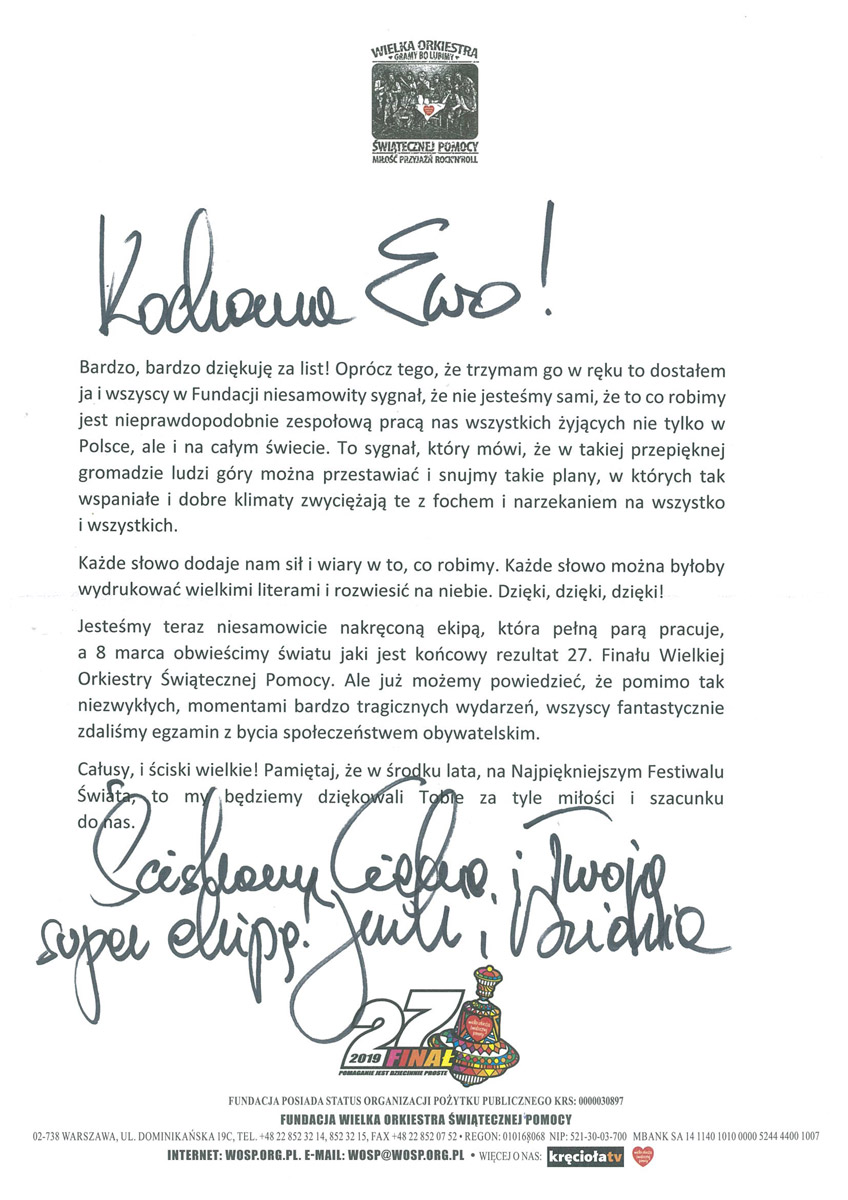 WIELKA ORKIESTRA
GRAMY BO LUBIMY
ŚWIĄTECZNEJ POMOCY
MIŁOŚĆ PRZYJAŹŃ ROCK'N'ROLL
Kochana Ewo!
Bardzo, bardzo dziękuję za list! Oprócz tego, że trzymam go w ręku to dostałem
ja i wszyscy w Fundacji niesamowity sygnał, że nie jesteśmy sami, że to co robimy
jest nieprawdopodobnie zespołową pracą nas wszystkich żyjących nie tylko w
Polsce, ale i na całym świecie. To sygnał, który mówi, że w takiej przepięknej
gromadzie ludzi góry można przestawiać i snujmy takie plany, w których tak
wspaniałe i dobre klimaty zwyciężają te z fochem i narzekaniem na wszystko
i wszystkich.
Każde słowo dodaje nam sił i wiary w to, co robimy. Każde słowo można byłoby
wydrukować wielkimi literami i rozwiesić na niebie. Dzięki, dzięki, dzięki!
Jesteśmy teraz niesamowicie nakręconą ekipą, która pełną parą pracuje,
a 8 marca obwieścimy światu jaki jest końcowy rezultat 27. Finału Wielkiej
Orkiestry Świątecznej Pomocy. Ale już możemy powiedzieć, że pomimo tak
niezwykłych, momentami bardzo tragicznych wydarzeń, wszyscy fantastycznie
zdaliśmy egzamin z bycia społeczeństwem obywatelskim.
Całusy, i ściski wielkie! Pamiętaj, że w środku lata, na Najpiękniejszym Festiwalu
Świata, to my będziemy dziękowali Tobie za tyle miłości i szacunku
do nas.
Ściskamy Ciebie i Twoją
super ekipę! Jurek i Dzidzia
27
2019 FINAŁ
POMAGANIE JEST DZIECINNIE PROSTE
FUNDACJA POSIADA STATUS ORGANIZACJI POŻYTKU PUBLICZNEGO KRS: 0000030897
FUNDACJA WIELKA ORKIESTRA ŚWIĄTECZNEJ POMOCY
02-738 WARSZAWA, UL. DOMINIKAŃSKA 19C, TEL. +48 22 852 32 14, 852 32 15, FAX +48 22 852 07 52 • REGON: 010168068 NIP: 521-30-03-700 MBANK SA 14 1140 1010 0000 5244 4400 1007
INTERNET: WOSP.ORG.PL. E-MAIL: WOSP@WOSP.ORG.PL • WIĘCEJ O NAS: kręciołatv